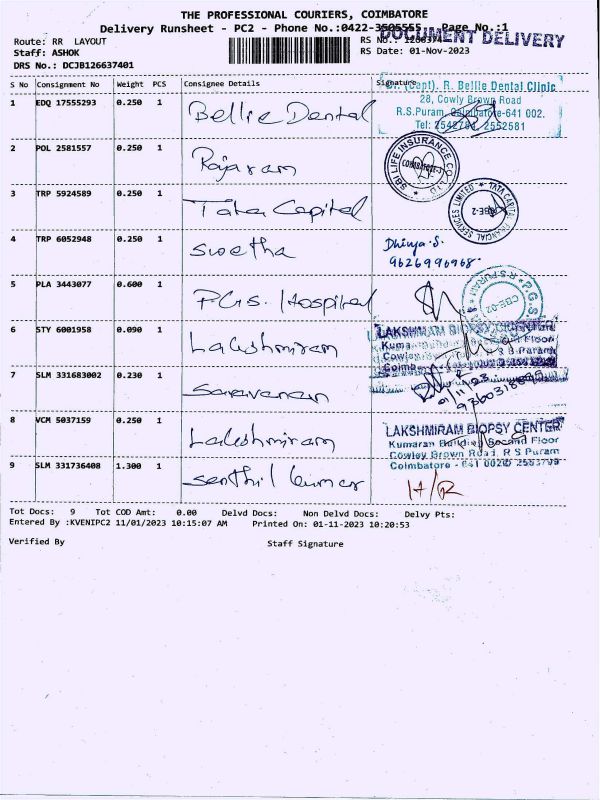 THE PROFESSIONAL COURIERS, COIMBATORE
Delivery Runsheet - PC2 - Phone No.:0422-3505555 Page No.:1
DOCUMENT DELIVERY
Route: RR LAYOUT
RS No.:
Staff: ASHOK
RS Date: 01-Nov-2023
DRS No.: DCJB126637401
S No Consignment No Weight PCS Consignee Details Signature
1 EDQ 17555293 0.250 1 Bellie Dental
Dr. (Capt). R. Bellie Dental Clinic
28, Cowly Brown Road
R.S.Puram, Coimbatore-641 002.
Tel: 2552581
2 POL 2581557 0.250 1 Rajaram
SBI LIFE INSURANCE CO. LTD
3 TRP 5924589 0.250 1 Tata Capital
TATA CAPITAL FINANCIAL SERVICES LIMITED
4 TRP 6052948 0.250 1 Swetha
Dhivya.S.
9626990968
5 PLA 3443077 0.600 1 P.G.S. Hospital
P.G.S.
CBE-02
6 STY 6001958 0.090 1 Lakshmiram
LAKSHMIRAM BIOPSY CENTER
7 SLM 331683002 0.230 1 Saravanan
01/11/23
8 VCM 5037159 0.250 1 Lakshmiram
LAKSHMIRAM BIOPSY CENTER
Kumaran Building Second Floor
Cowley Brown Road, R S Puram
Coimbatore - 641 002
9 SLM 331736408 1.300 1 Senthil kumar
H/R
Tot Docs: 9 Tot COD Amt: 0.00 Delvd Docs: Non Delvd Docs: Delvy Pts:
Entered By :KVENIPC2 11/01/2023 10:15:07 AM Printed On: 01-11-2023 10:20:53
Verified By Staff Signature